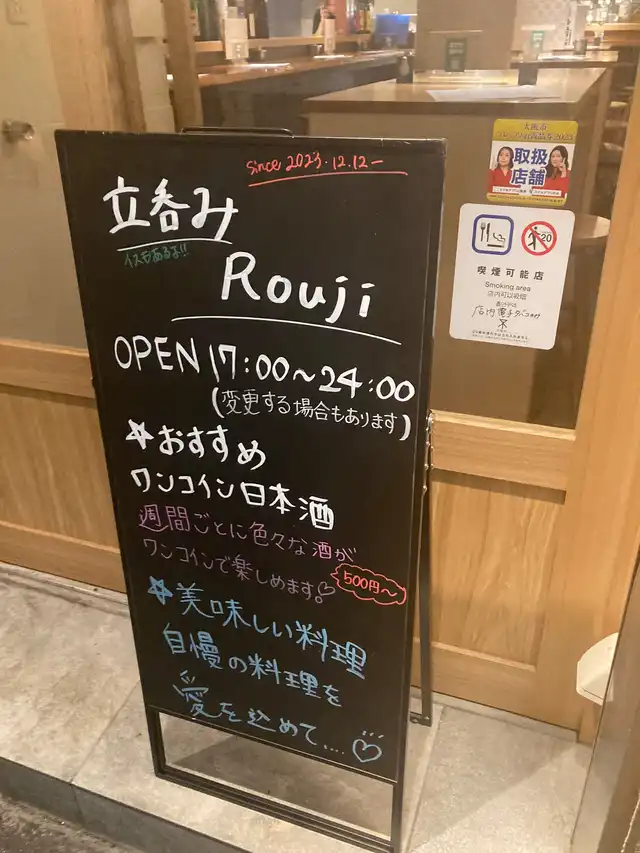 since 2023.12.12ー
立呑み
イスもあるよ!!
Rouji
OPEN 17:00~24:00
(変更する場合もあります)
☆おすすめ
ワンコイン日本酒
週間ごとに色々な酒が
ワンコインで楽しめます。♡
500円~
☆美味しい料理
自慢の料理を
愛を込めて....♡
大阪市
取扱
店舗
20
喫煙可能店
Smoking area
店内可以吸烟